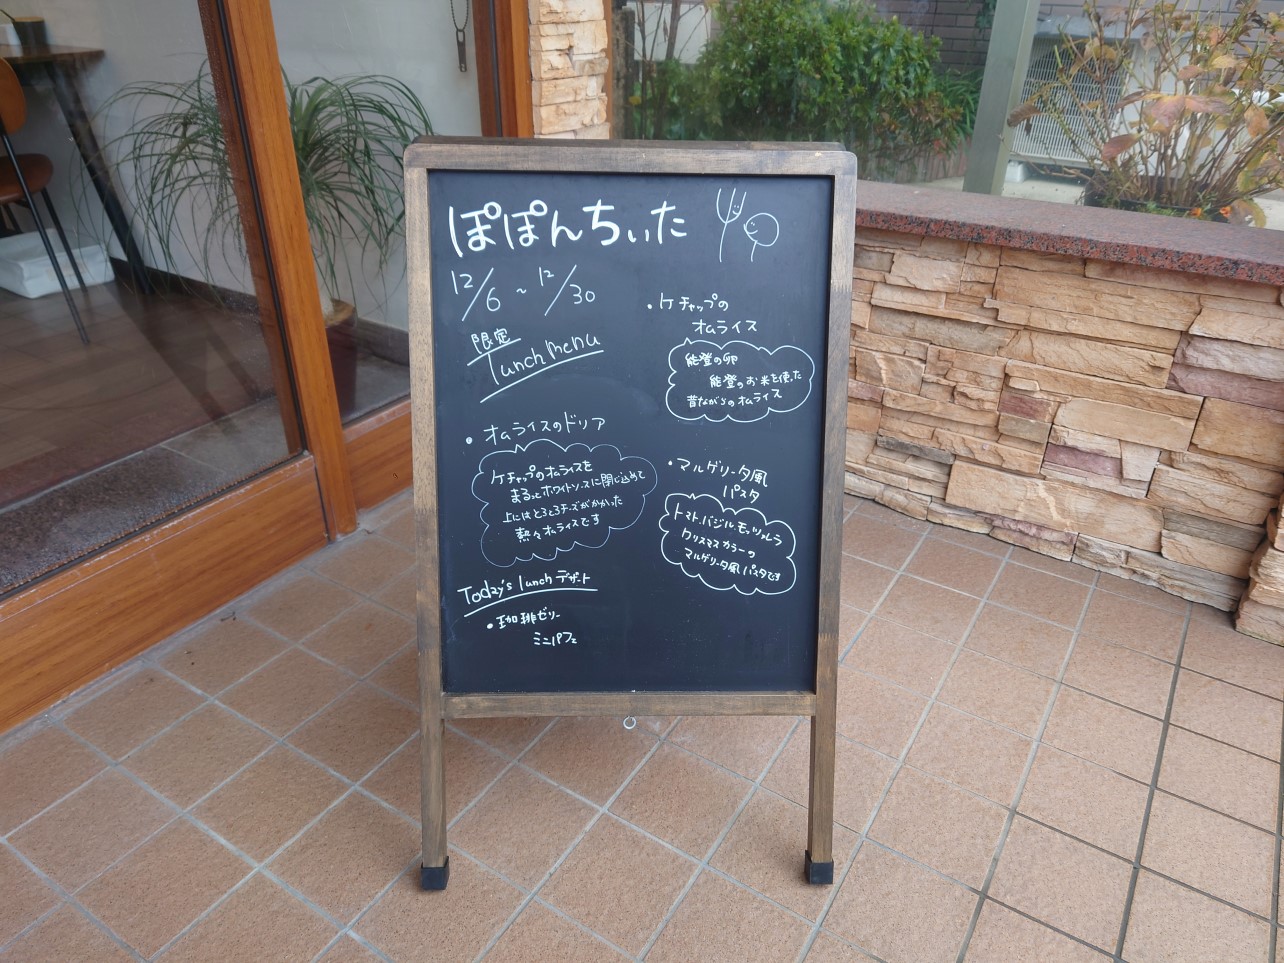 ぽぽんちぃた
12/6 ~ 12/30
限定
Lunch menu
・オムライスのドリア
ケチャップのオムライスを
まるっとホワイトソースに閉じ込めて
上にはとろとろチーズがかかった
熱々オムライスです
Today's lunch デザート
・珈琲ゼリー
ミニパフェ
・ケチャップの
オムライス
能登の卵
能登のお米を使った
昔ながらのオムライス
・マルゲリータ風
パスタ
トマト、バジル、モッツァレラ
クリスマスカラーの
マルゲリータ風パスタです